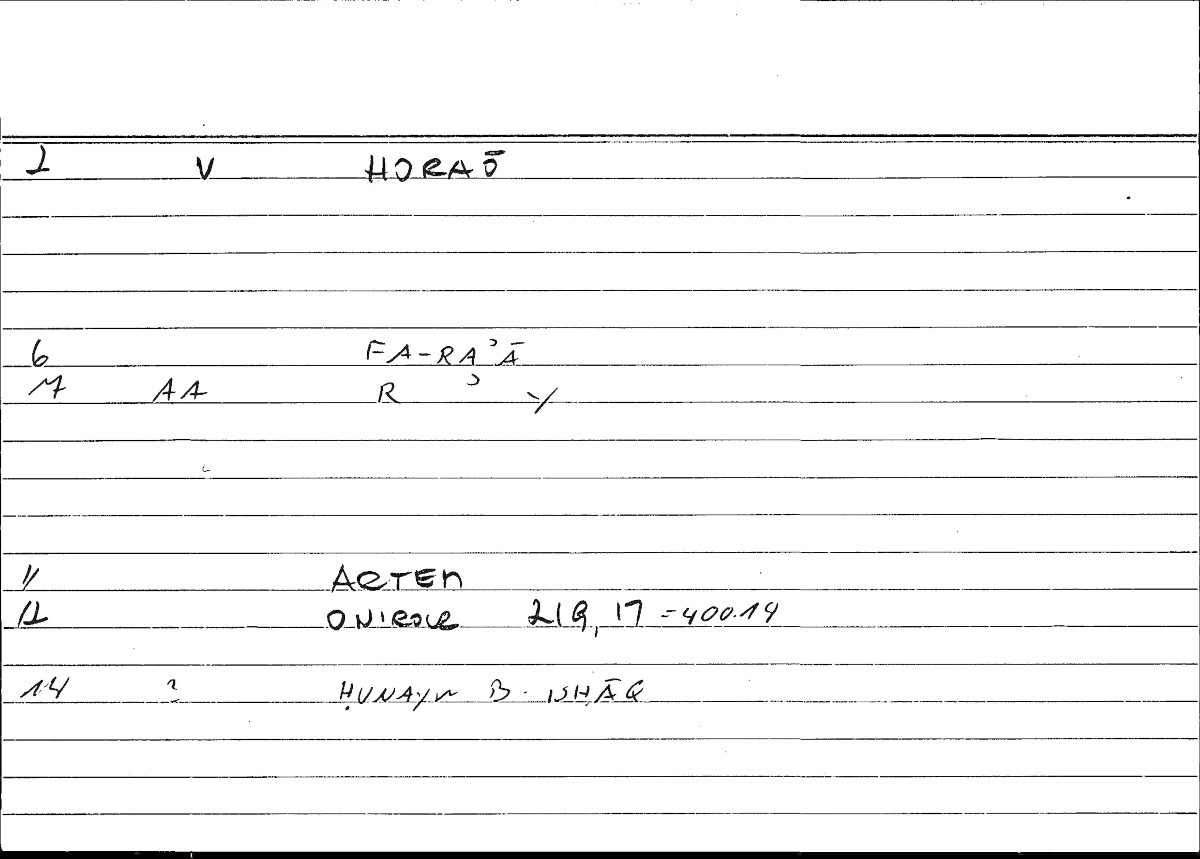 2 V HORAŌ
6 FA-RAʾĀ
7 AA R ʾ Y
11 ARTEM
12 ONIROCR 219, 17 = 400.14
14 ? ḤUNAYN B. ISḤĀQ